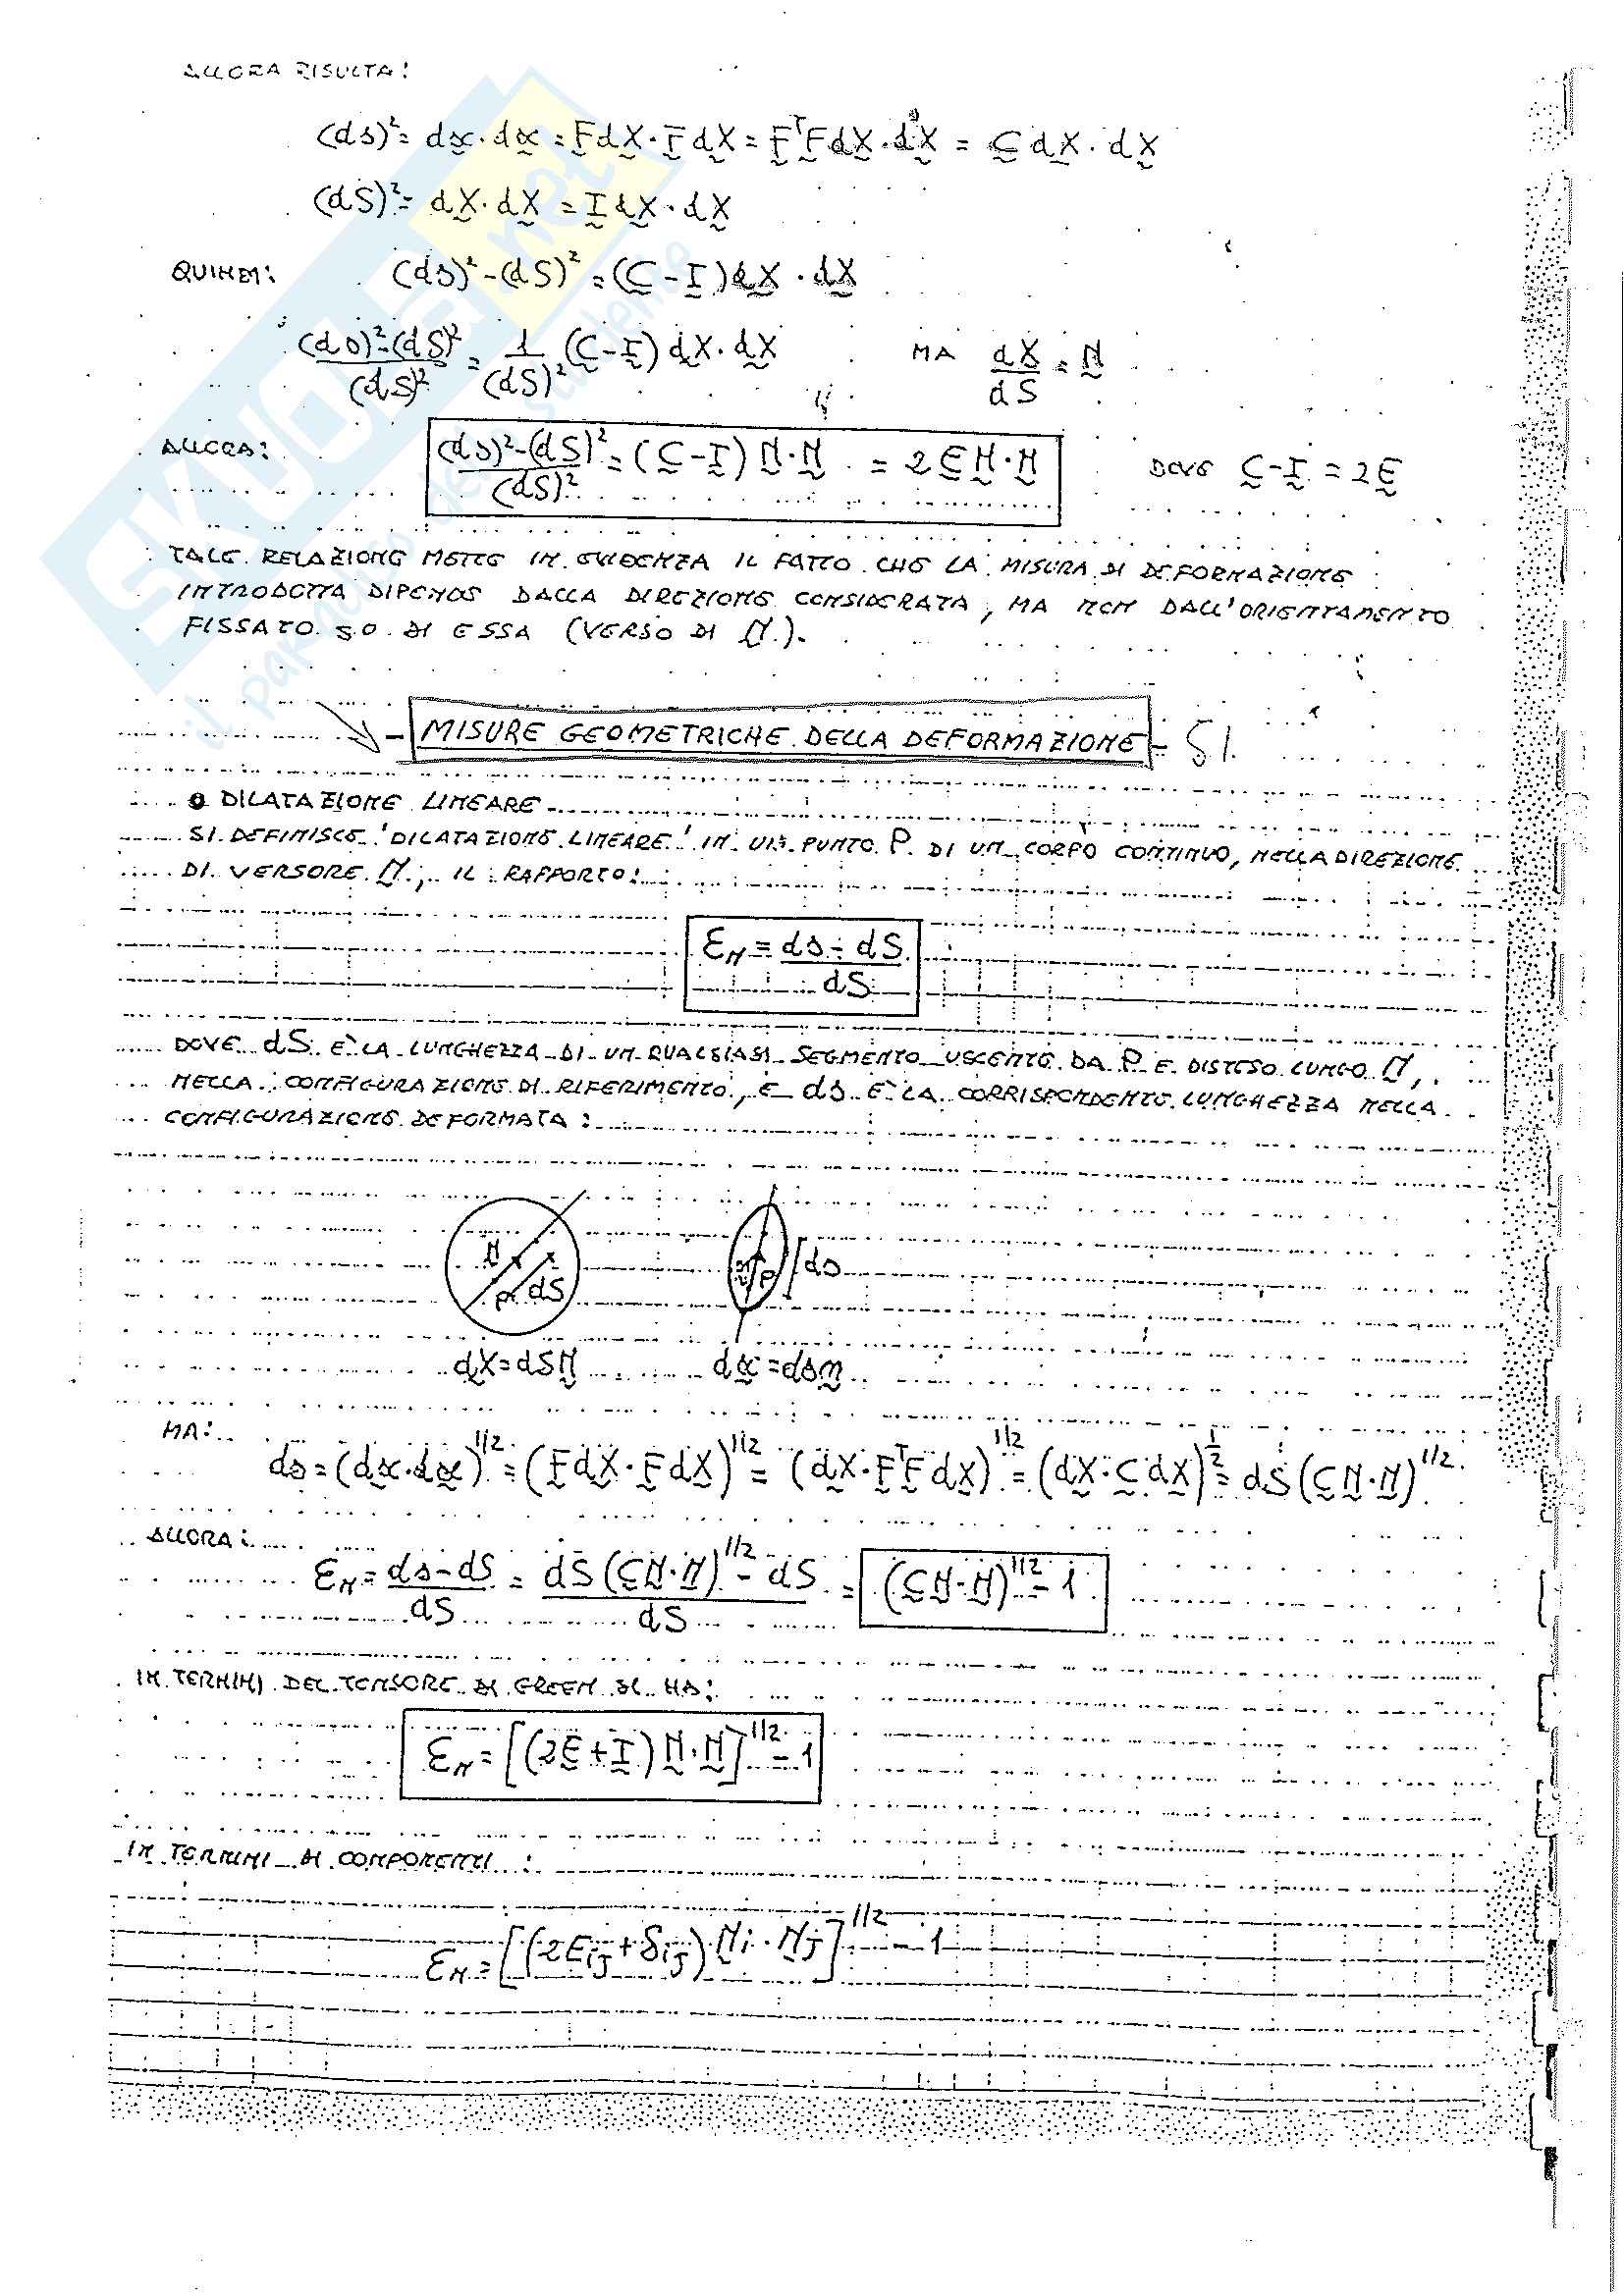 ALLORA RISULTA:
(ds)² = dx·dx = FdX·FdX = FᵀFdX·dX = CdX·dX
(dS)² = dX·dX = IdX·dX
QUINDI: (ds)²-(dS)² = (C-I)dX·dX
(ds)²-(dS)²/(dS)² = 1/(dS)² (C-I)dX·dX MA dX/dS = N
ALLORA: (ds)²-(dS)²/(dS)² = (C-I)N·N = 2EN·N DOVE C-I = 2E
TALE RELAZIONE METTE IN EVIDENZA IL FATTO CHE LA MISURA DI DEFORMAZIONE
INTRODOTTA DIPENDE DALLA DIREZIONE CONSIDERATA, MA NON DALL'ORIENTAMENTO
FISSATO SU DI ESSA (VERSO DI N).
- MISURE GEOMETRICHE DELLA DEFORMAZIONE - SI
DILATAZIONE LINEARE
SI DEFINISCE 'DILATAZIONE LINEARE' IN UN PUNTO P DI UN CORPO CONTINUO, NELLA DIREZIONE
DI VERSORE N, IL RAPPORTO:
εN = ds-dS/dS
DOVE dS È LA LUNGHEZZA DI UN QUALSIASI SEGMENTO USCENTE DA P E DISTESO LUNGO N,
NELLA CONFIGURAZIONE DI RIFERIMENTO, E ds È LA CORRISPONDENTE LUNGHEZZA NELLA
CONFIGURAZIONE DEFORMATA:
N P dS n P ds
dX=dSN dx=dsn
MA:
ds = (dx·dx)^1/2 = (FdX·FdX)^1/2 = (dX·FᵀFdX)^1/2 = (dX·CdX)^1/2 = dS(CN·N)^1/2
ALLORA:
εN = ds-dS/dS = dS(CN·N)^1/2 - dS/dS = (CN·N)^1/2 - 1
IN TERMINI DEL TENSORE DI GREEN SI HA:
εN = [(2E+I)N·N]^1/2 - 1
IN TERMINI DI COMPONENTI:
εN = [(2Eij+δij)Ni·Nj]^1/2 - 1